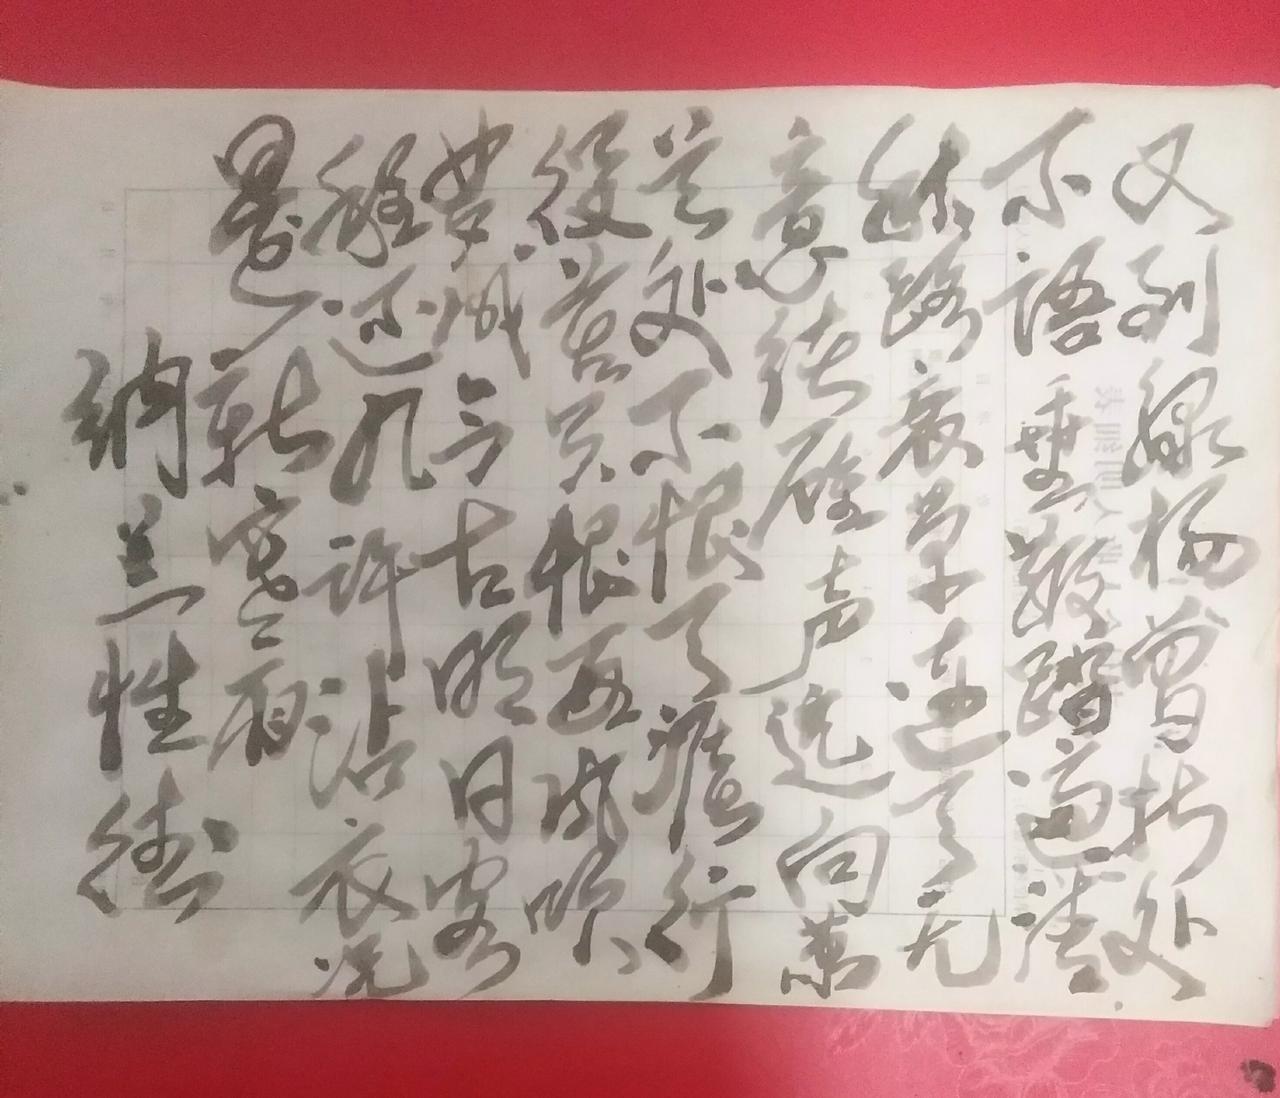 又到绿杨曾折处
不语垂鞭踏遍清
秋路衰草连天无
意绪雁声远向萧
关处不恨天涯行
役苦只恨西风吹
梦成今古明日客
程还几许沾衣况
是新寒雨
纳兰性德